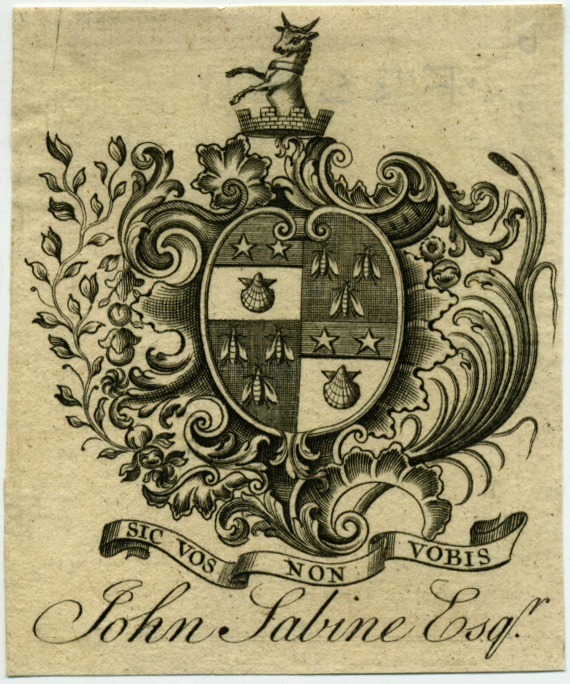 SIC VOS NON VOBIS
John Sabine Esqr.